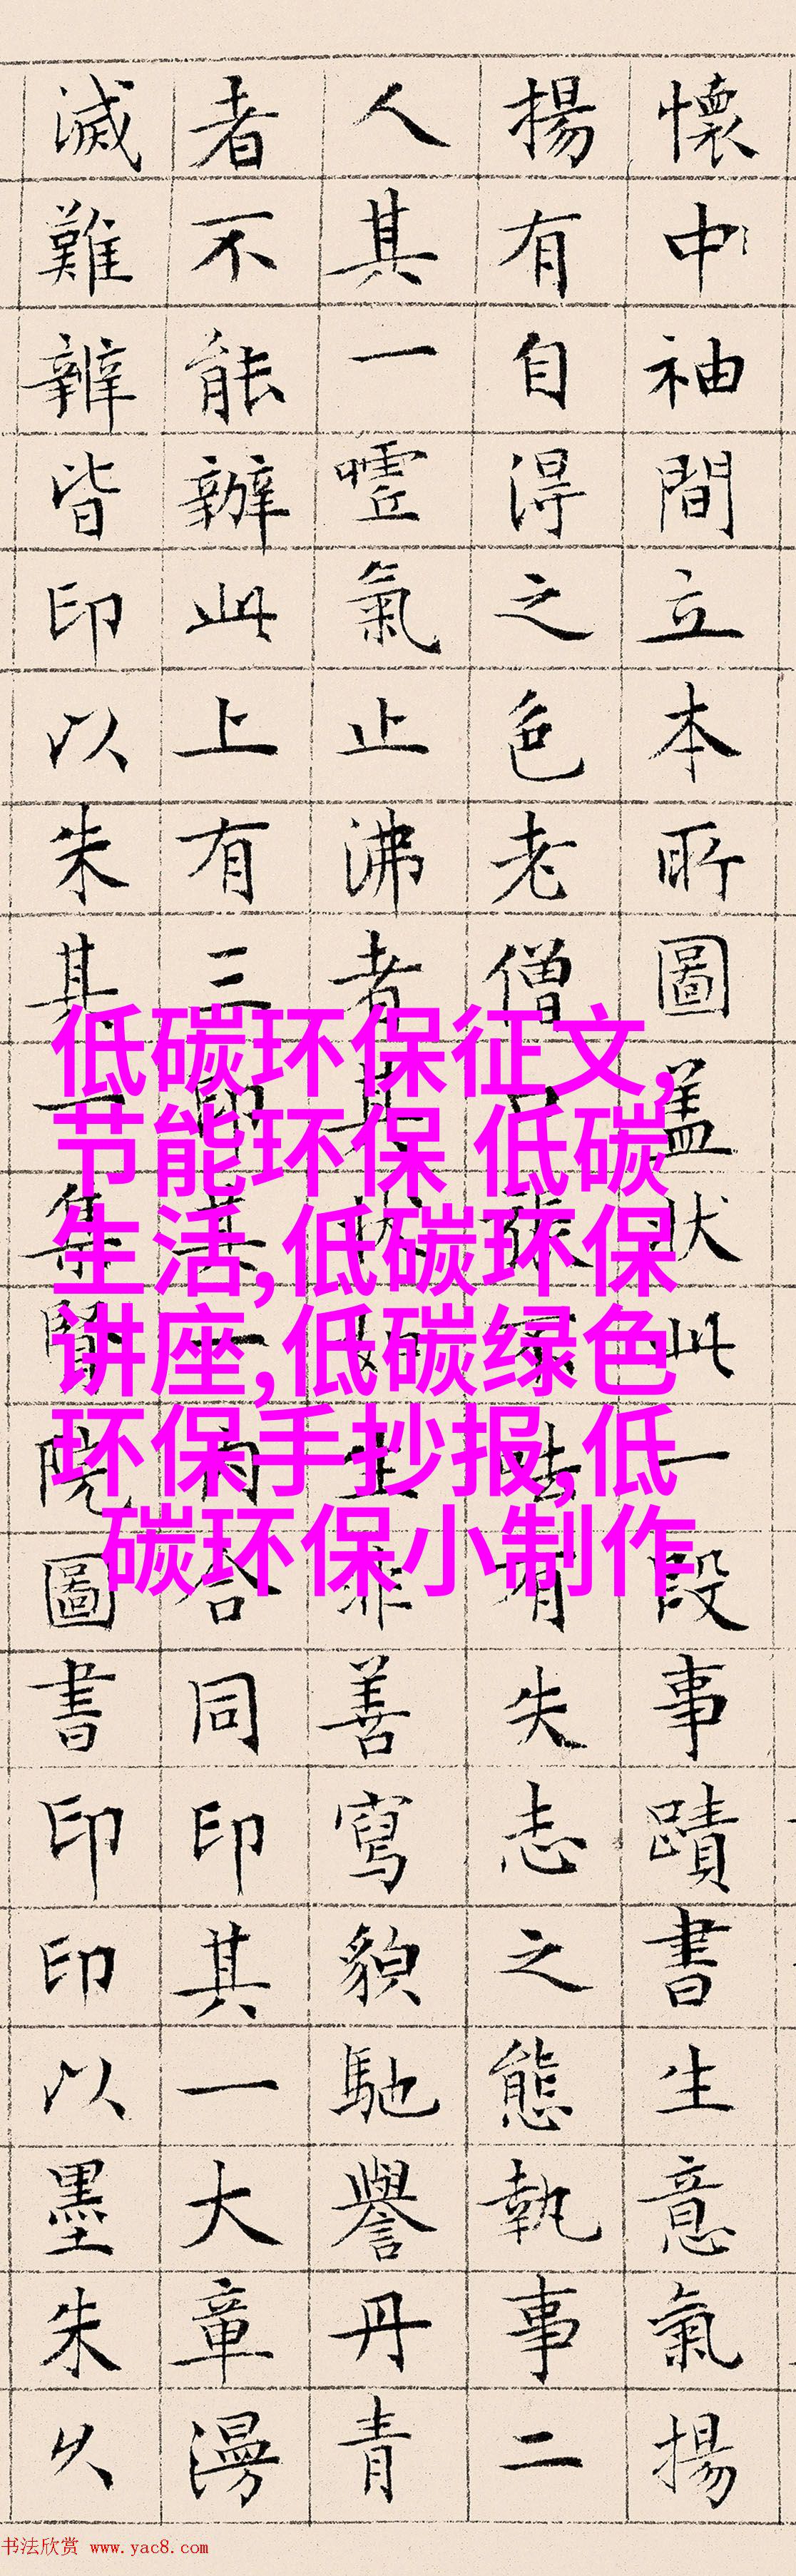 懷中袖間立本所圖蓋狀此一段事蹟書生意氣揚
揚有自得之色老僧口張不呿有失志之態執事二
人其一噓氣止沸者其狀如生非善寫貌馳譽丹青
者不能辦此上有三印其一內合同印其一大章漫
滅難辨皆印以朱其一集賢院圖書印印以墨朱久
低碳环保征文,
节能环保 低碳
生活,低碳环保
讲座,低碳绿色
环保手抄报,低
碳环保小制作
书法欣赏 www.yac8.com